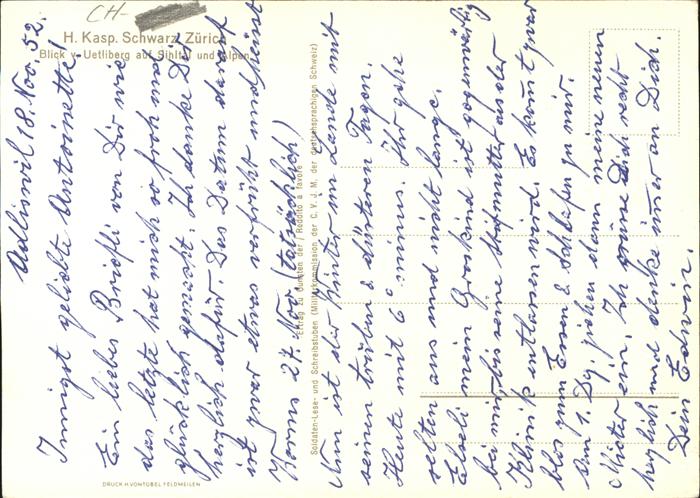 CH-
H. Kasp. Schwarz, Zürich
Blick v. Uetliberg auf Sihltal und Alpen
Adliswil 18. Nov. 52.
Innigst geliebte Antoinette!
Ein liebes Briefli von Dir wie
das letzte hat mich so froh und
glücklich gemacht. Ich danke Dir
herzlich dafür. Das Datum darauf
ist zwar etwas verfrüht und heisst
27. Nov. (tatsächlich)
Nun ist der Winter im Lande mit
seinen trüben & düsteren Tagen.
Heute mit 6° minus. Ihr gehe
selten aus und nicht lange.
mein Grosskind ist gegenwärtig
bei mir bis seine Mutter aus der
Klinik entlassen wird. Es kommt zwar
blos zum Essen & Schlafen zu mir.
am 1. Dz. ziehen dann meine neuen
Mieter ein. Ich grüsse Dich recht
herzlich und denke immer an Dich.
Dein Edwin.
Ertrag zu Gunsten der / Reddito a favore
Soldaten-Lese- und Schreibstuben (Militärkommission der C. V. J. M. der deutschsprachigen Schweiz)
DRUCK H. VONTOBEL FELDMEILEN